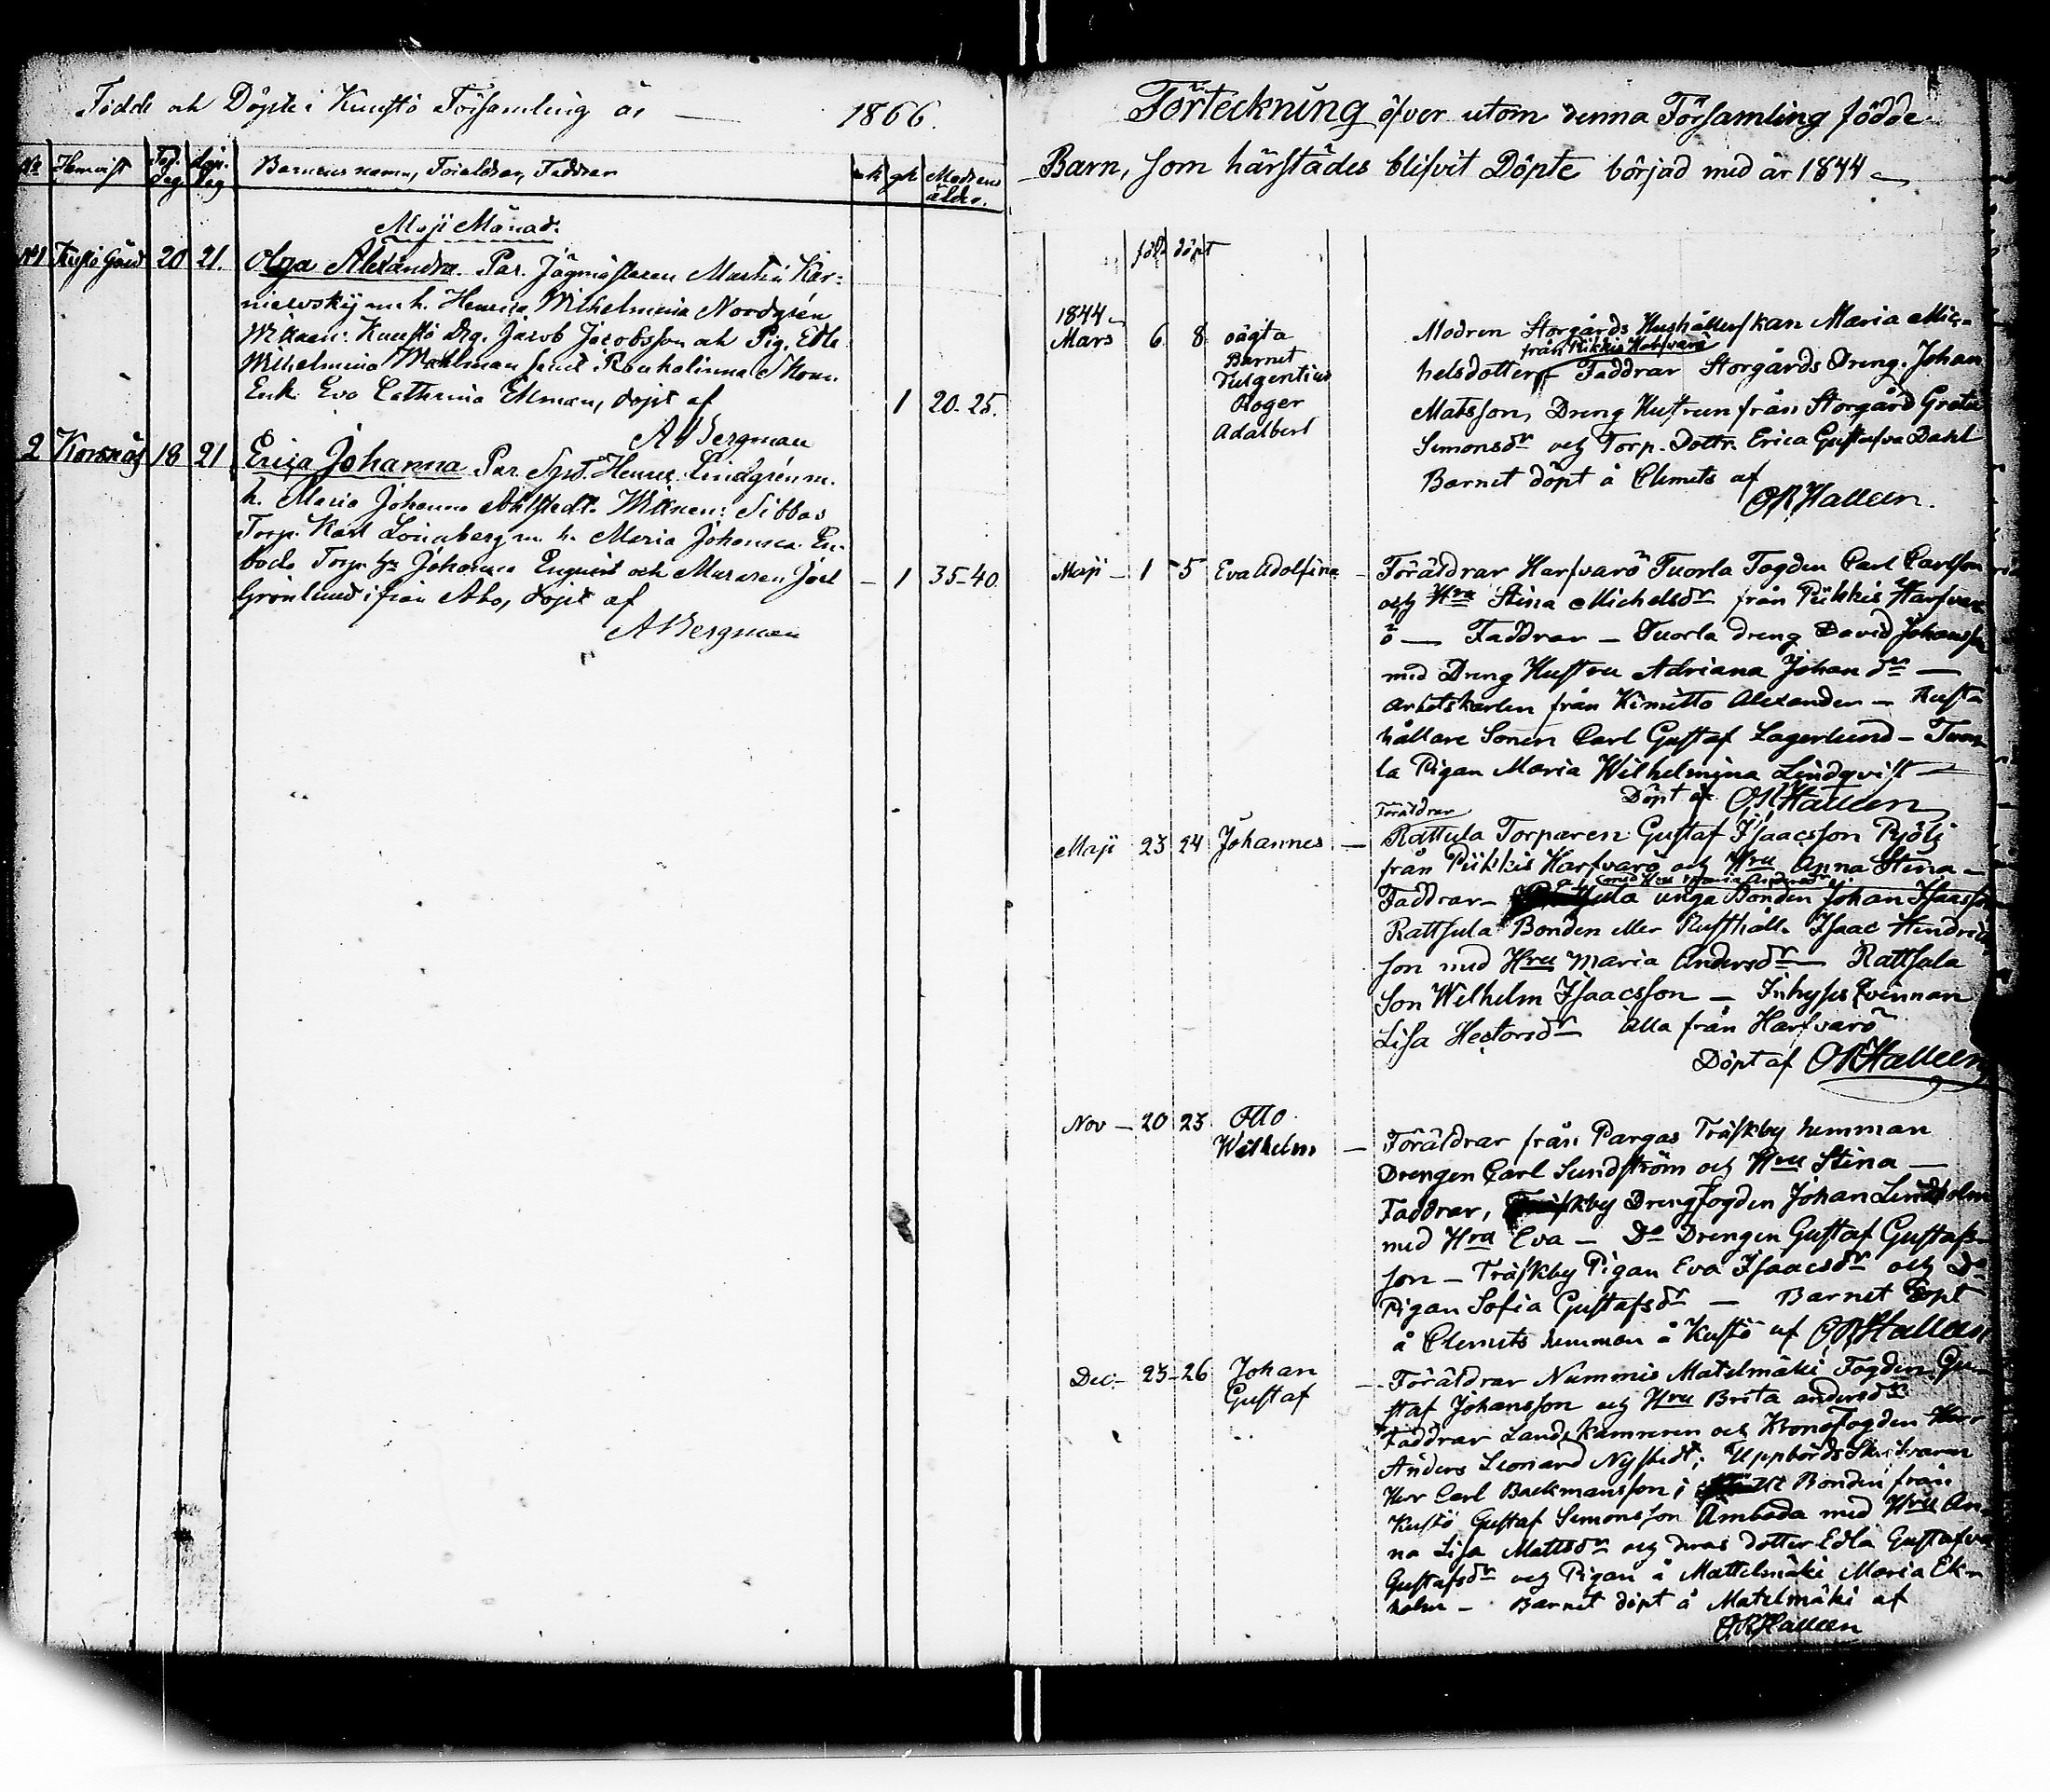 Födde och Döpte i Kustö Församling år — 1866.
No Hemvist Föd. dag Döp. dag Barnens namn, Föräldrar, Faddrar mk qk Modrens ålder.
Maji Månad.
No 1 Kustö Gård 20 21. Olga Alexandra. Par. Jägmästaren Martin Kar-
niewskij m. h. Henrica Wilhelmina Nordgrén
Wittnen: Kustö Drg. Jacob Jacobsson och Pig. Edla
Wilhelmina Wahlman samt
Enk. Eva Cathrina Ekman, döpt af 1 20-25.
A Bergman
2 Korsnäs 18 21 Erica Johanna Par. Henric Lindgrén m.
h. Maria Johanna Ahlstedt. Wittnen: Sibbas
Torp. Karl Lönnberg m. h. Maria Johanna.
Torp. Johanna och Muraren Joel — 1 35-40.
Grönlund ifrån Åbo, döpt af
A Bergman
Förteckning öfver utom denna Församling födde
Barn, som härstädes blifvit Döpte börjad med år 1844
föd. döpt
1844
Mars 6 8 oägta
Barnet
Fulgentius
Roger
Adalbert
Modren Storgårds Hushållerskan Maria Mic-
från Piikkis Harfvarö
helsdotter Faddrar Storgårds Dreng. Johan
Matsson, Dreng Hustrun från Storgård Greta
Simonsdr och Torp. Dottr. Erica Gustafva Dahl
Barnet döpt å Clemets af
O R Halleen.
Maji — 1 5 Eva Adolfina — Föräldrar Harfvarö Tuorla Fogden Carl Carlsson
och Hru Stina Michelsdr från Piikkis Harfvar
ö — Faddrar — Tuorla dreng David Johansson
med Dreng Hustru Adriana Johan dr —
Arbetskarlen från Kimitto Alexander — Rust
hållare Sonen Carl Gustaf Lagerlund — Tuor
la Pigan Maria Wilhelmina Lindqvist —
Döpt af O R Halleen
Föräldrar
Maji 23 24 Johannes — Rattula Torparen Gustaf Isaacsson
från Piikkis Harfvarö och Hru Anna Stina —
med Hru Maria Andersdr
Faddrar — unga Bonden Johan Isaacsson
Rattsula Bonden eller Rusthåll. Isaac Hendric
son med Hru Maria Andersdr — Rattsula
Son Wilhelm Isaacsson — Inhyses Qvinnan
Lisa Hectorsdr Alla från Harfvarö
Döpt af O R Halleen
Nov — 20 23 Otto
Wilhelm — Föräldrar från Pargas Träskby hemman
Drengen Carl Sundström och Hru Stina —
Faddrar, Träskby Drengfogden Johan Lindholm
med Hru Eva — Do Drengen Gustaf Gustafs-
son — Träskby Pigan Eva Isaacsdr och Do
Pigan Sofia Gustafsdr — Barnet Döpt
å Clemets hemman å Kustö af O R Halleen
Dec. — 23 — 26 Johan
Gustaf — Föräldrar Nummis Matelmäki Fogden Gu-
staf Johansson och Hru Brita andersdr
Faddrar Landskamreren och Kronofogden Herr
Anders Leonard Nystedt; Uppbörds Skrifvaren
Herr Carl Backmansson; Bonden från
Kustö Gustaf Simonsson Ämboda med Hru An-
na Lisa Mattsdr och deras dotter Edla Gustafva
Gustafsdr och Pigan å Mattelmäki Maria Ek-
holm — Barnet döpt å Matelmäki af
O R Halleen